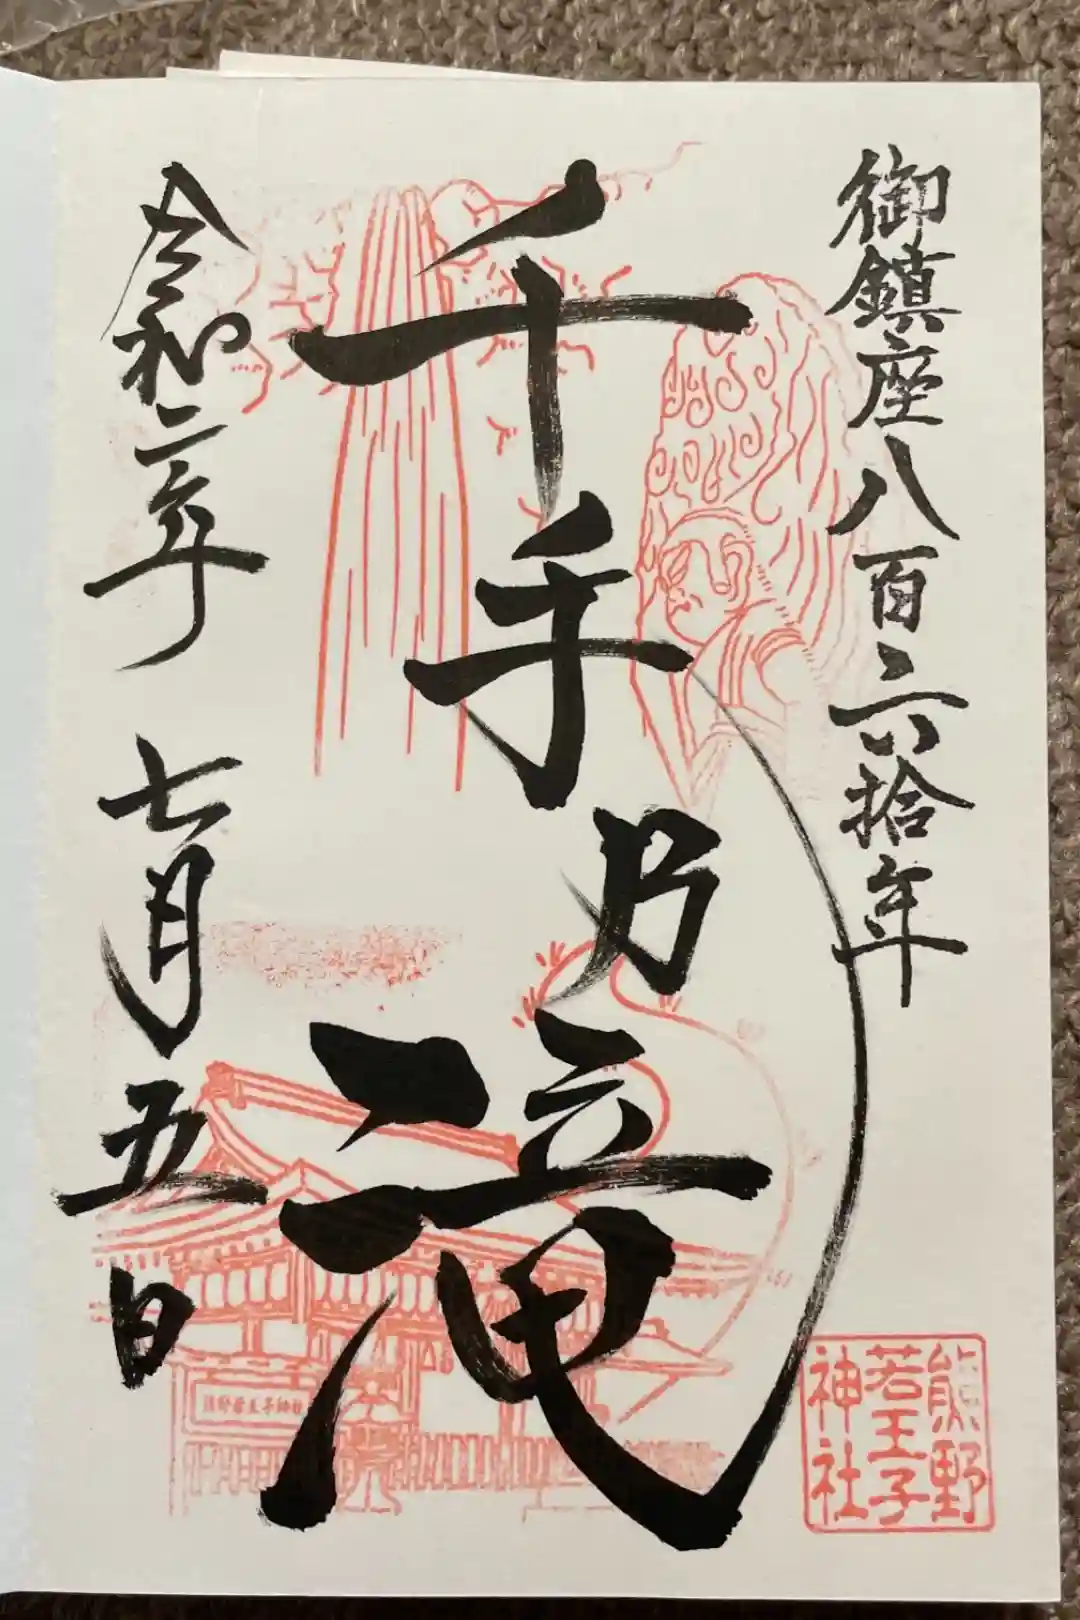 御鎮座八百六拾年
千手乃滝
令和二年 七月五日
熊野
若王子
神社
熊野若王子神社